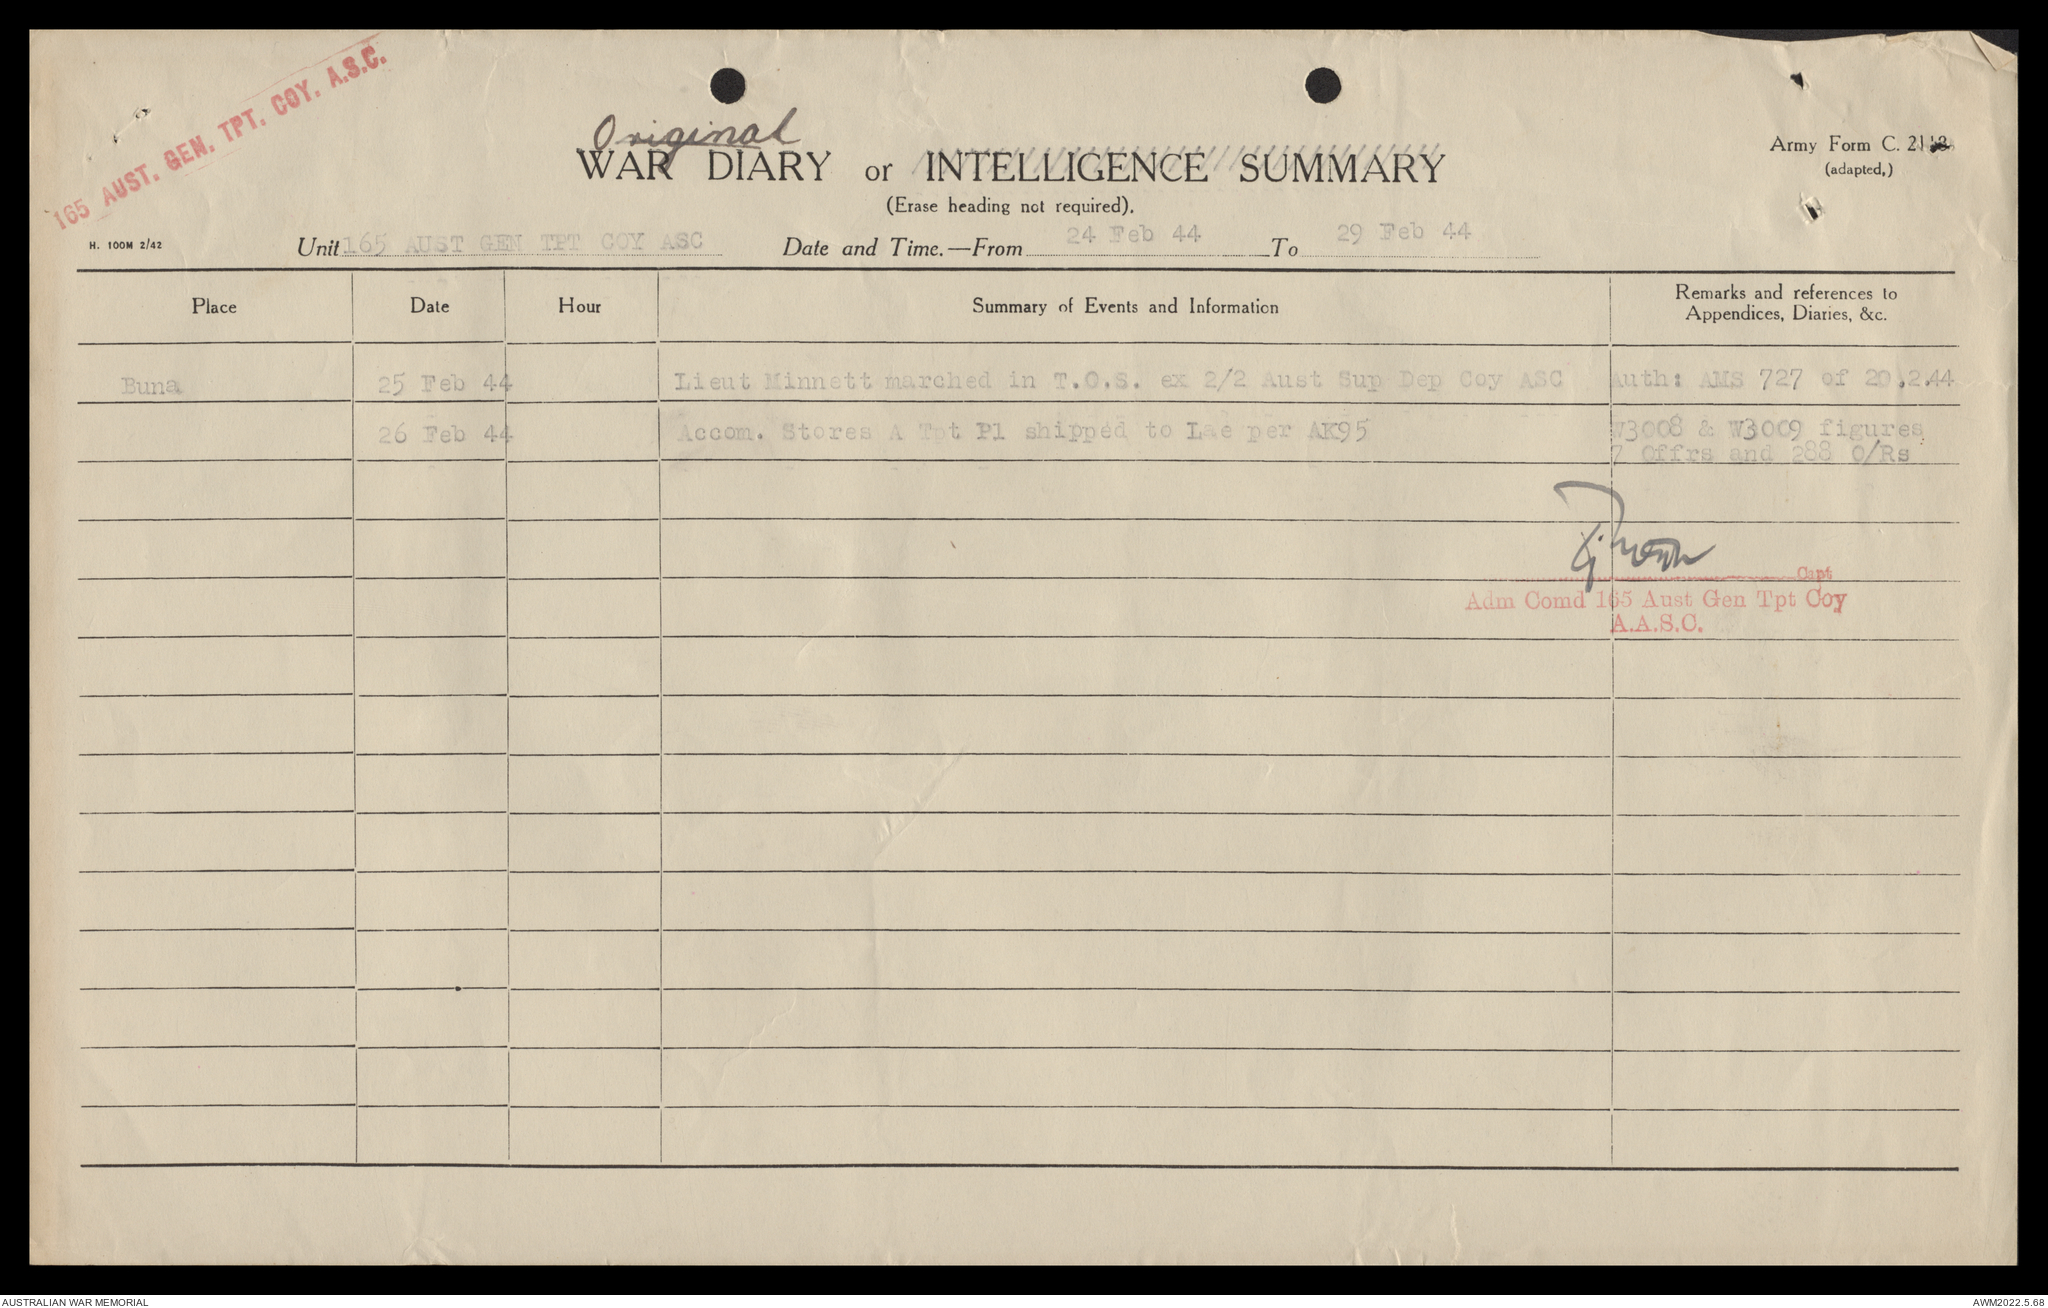 165 AUST. GEN. TPT. COY. A.S.C.
Original
WAR DIARY or INTELLIGENCE SUMMARY
(Erase heading not required).
Army Form C. 2118
(adapted,)
H. 100M 2/42
Unit 165 AUST GEN TPT COY ASC Date and Time.—From 24 Feb 44 To 29 Feb 44
Place Date Hour Summary of Events and Information Remarks and references to
Appendices, Diaries, &c.
Buna 25 Feb 44 Lieut Minnett marched in T.O.S. ex 2/2 Aust Sup Dep Coy ASC Auth: AMS 727 of 20.2.44
26 Feb 44 Accom. Stores A Tpt Pl shipped to Lae per AK95 W3008 & W3009 figures
7 Offrs and 288 O/Rs
Capt
Adm Comd 165 Aust Gen Tpt Coy
A.A.S.C.
AUSTRALIAN WAR MEMORIAL
AWM2022.5.68